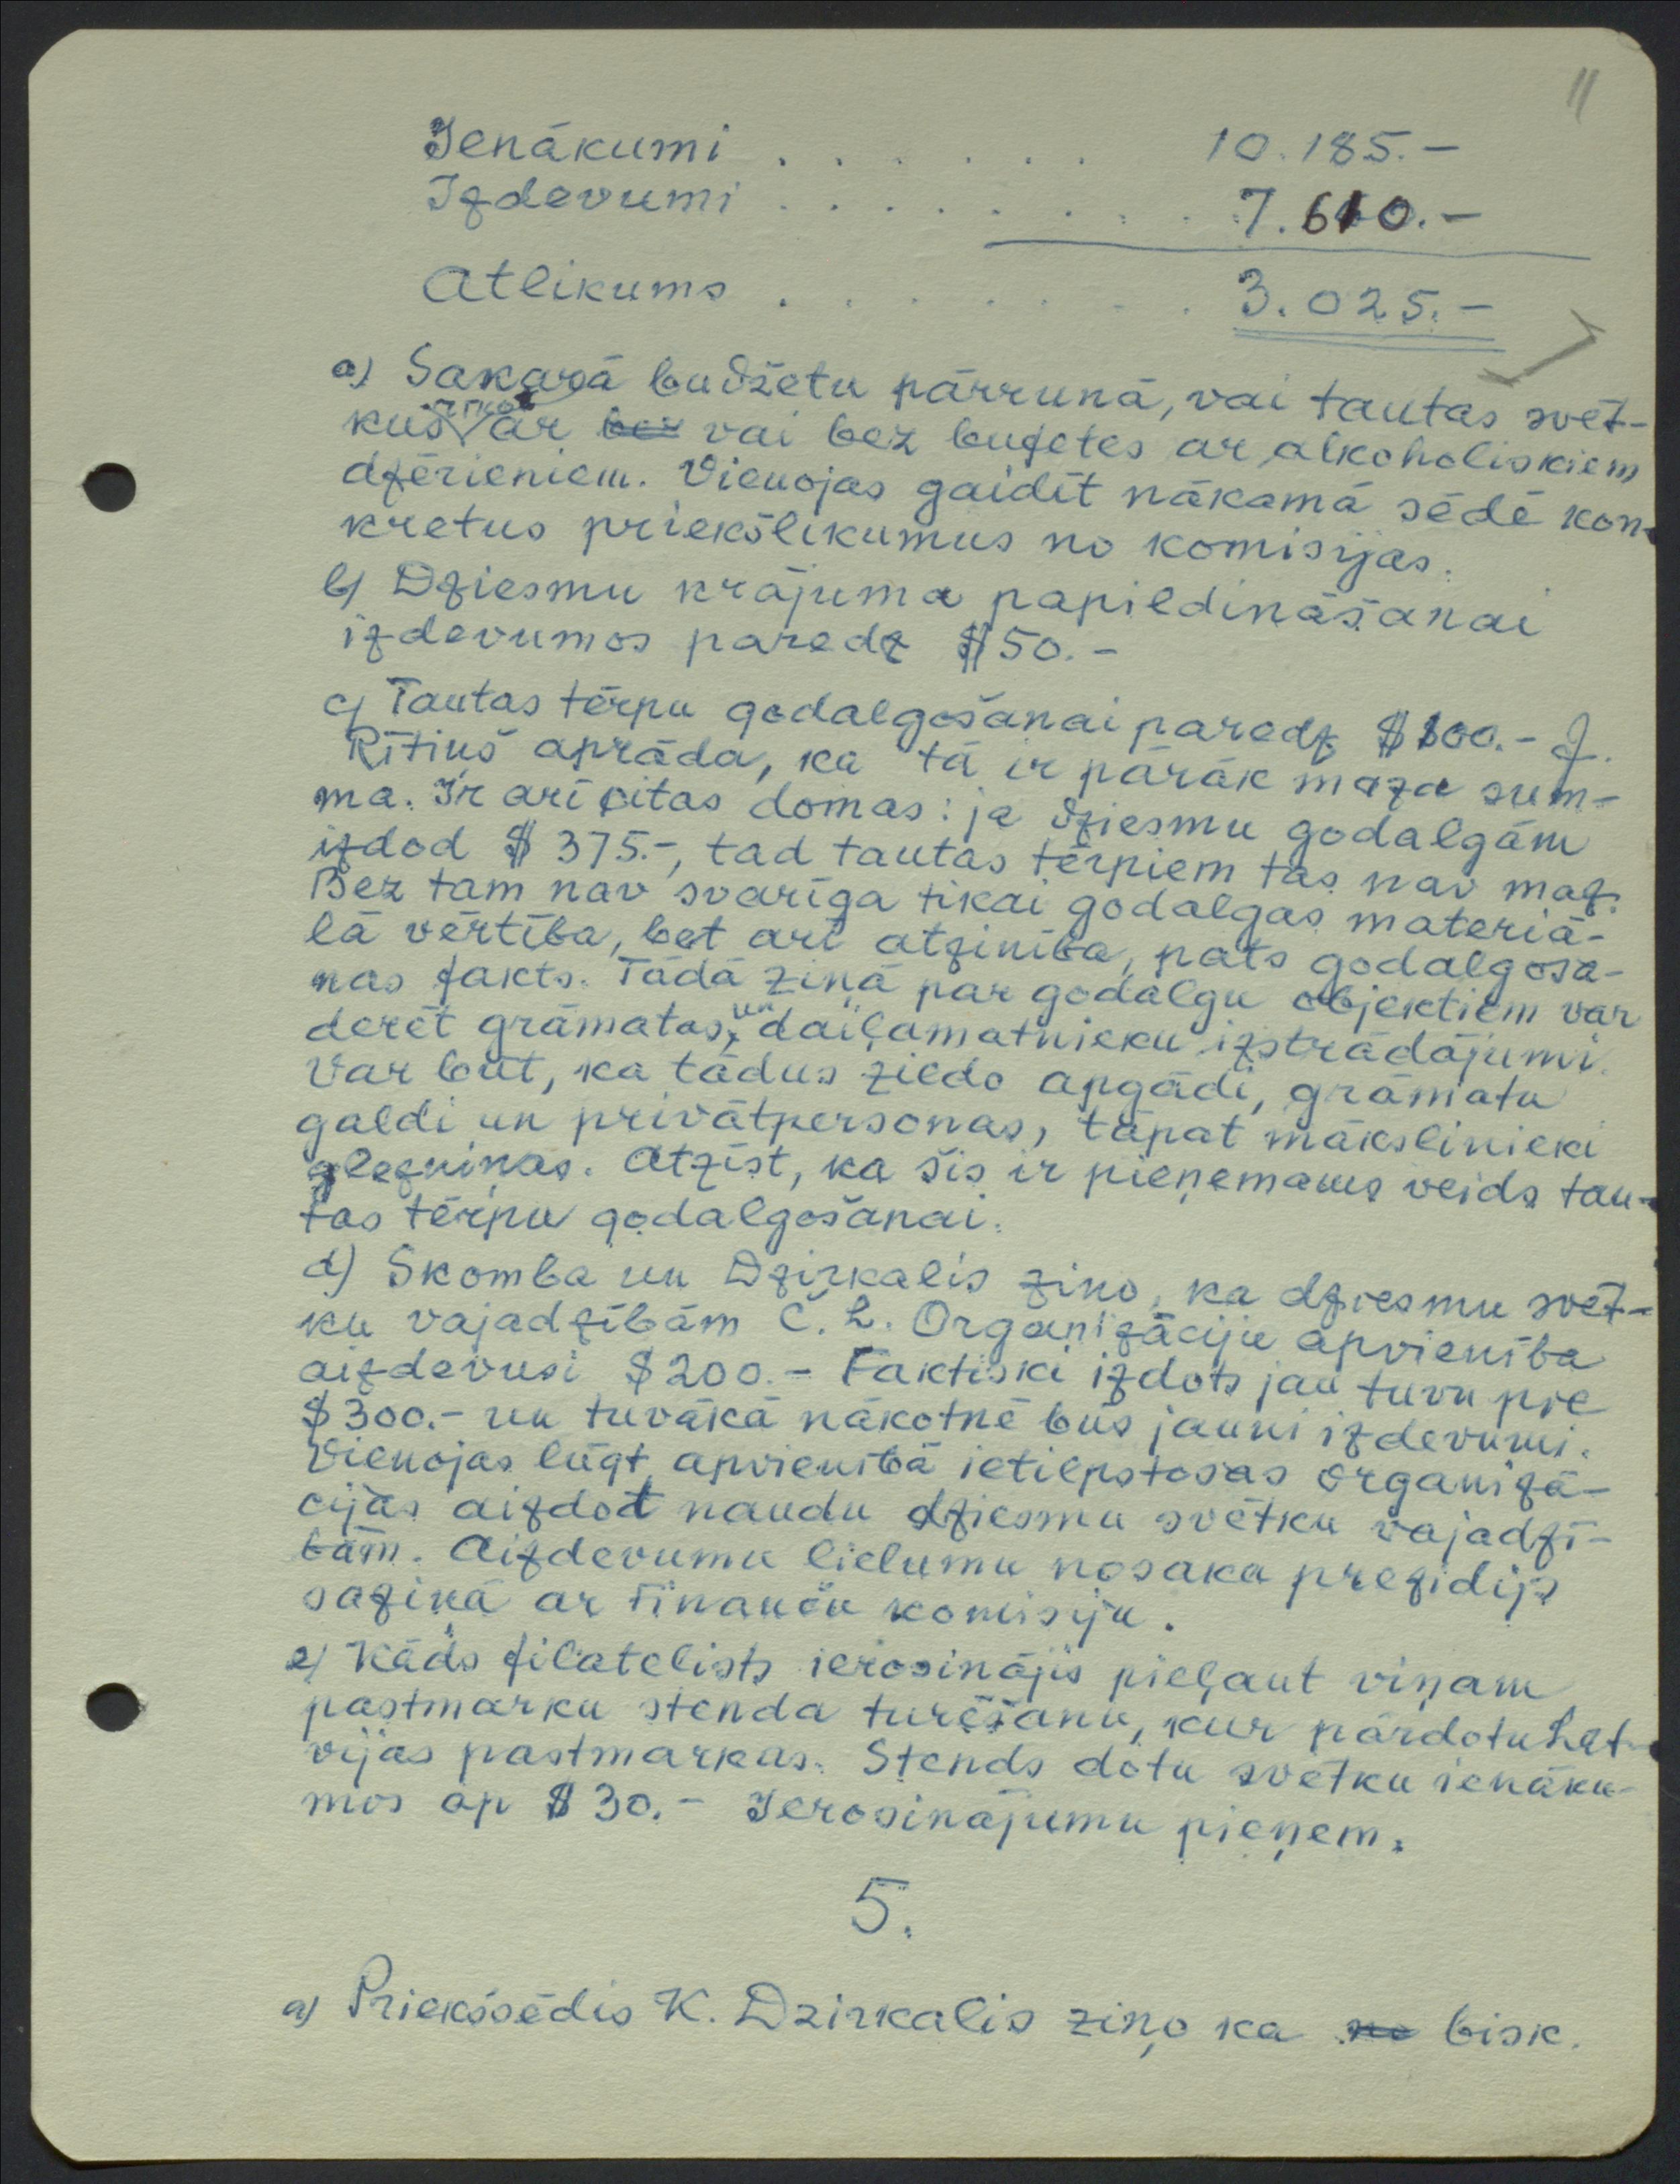 11
Ienākumi . . . . . . 10.185.-
Izdevumi . . . . . . . . 7.610.-
Atlikums . . . . . . . . 3.025.-
a) Sakarā budžetu pārrunā, vai tautas svēt-
kus rīkot ar bez vai bez bufetes ar alkoholiskiem
dzērieniem. Vienojas gaidīt nākamā sēdē kon-
kretus priekšlikumus no komisijas.
b) Dziesmu krājuma papildināšanai
izdevumos paredz $50.-
c) Tautas tērpu godalgošanai paredz $100.- J.
Rītiņš aprāda, ka tā ir pārāk maza sum-
ma. Ir arī citas domas: ja dziesmu godalgām
izdod $ 375.-, tad tautas tērpiem tas nav maz.
Bez tam nav svarīga tikai godalgas materiā-
lā vērtība, bet arī atzinība, pats godalgoša-
nas fakts. Tādā ziņā par godalgu objektiem var
derēt grāmatas, un daiļamatnieku izstrādājumi.
Var būt, ka tādus ziedo apgādi, grāmatu
galdi un privātpersonas, tāpat mākslinieki
glezniņas. Atzīst, ka šis ir pieņemams veids tau-
tas tērpu godalgošanai.
d) Skomba un Dzirkalis ziņo, ka dziesmu svēt-
ku vajadzībām Č. L. Organizāciju apvienība
aizdevusi $200.- Faktiski izdots jau tuvu pie
$300.- un tuvākā nākotnē būs jauni izdevumi.
Vienojas lūgt apvienībā ietilpstošas organizā-
cijas aizdot naudu dziesmu svētku vajadzī-
bām. Aizdevumu lielumu nosaka prezidijs
saziņā ar Finanču komisiju.
e) Kāds filatelists ierosinājis pieļaut viņam
pastmarku stenda turēšanu, kur pārdotu Lat-
vijas pastmarkas. Stends dotu svētku ienāku-
mos ap $30.- Ierosinājumu pieņem.
5.
a) Priekšsēdis K. Dzirkalis ziņo ka no bisk.